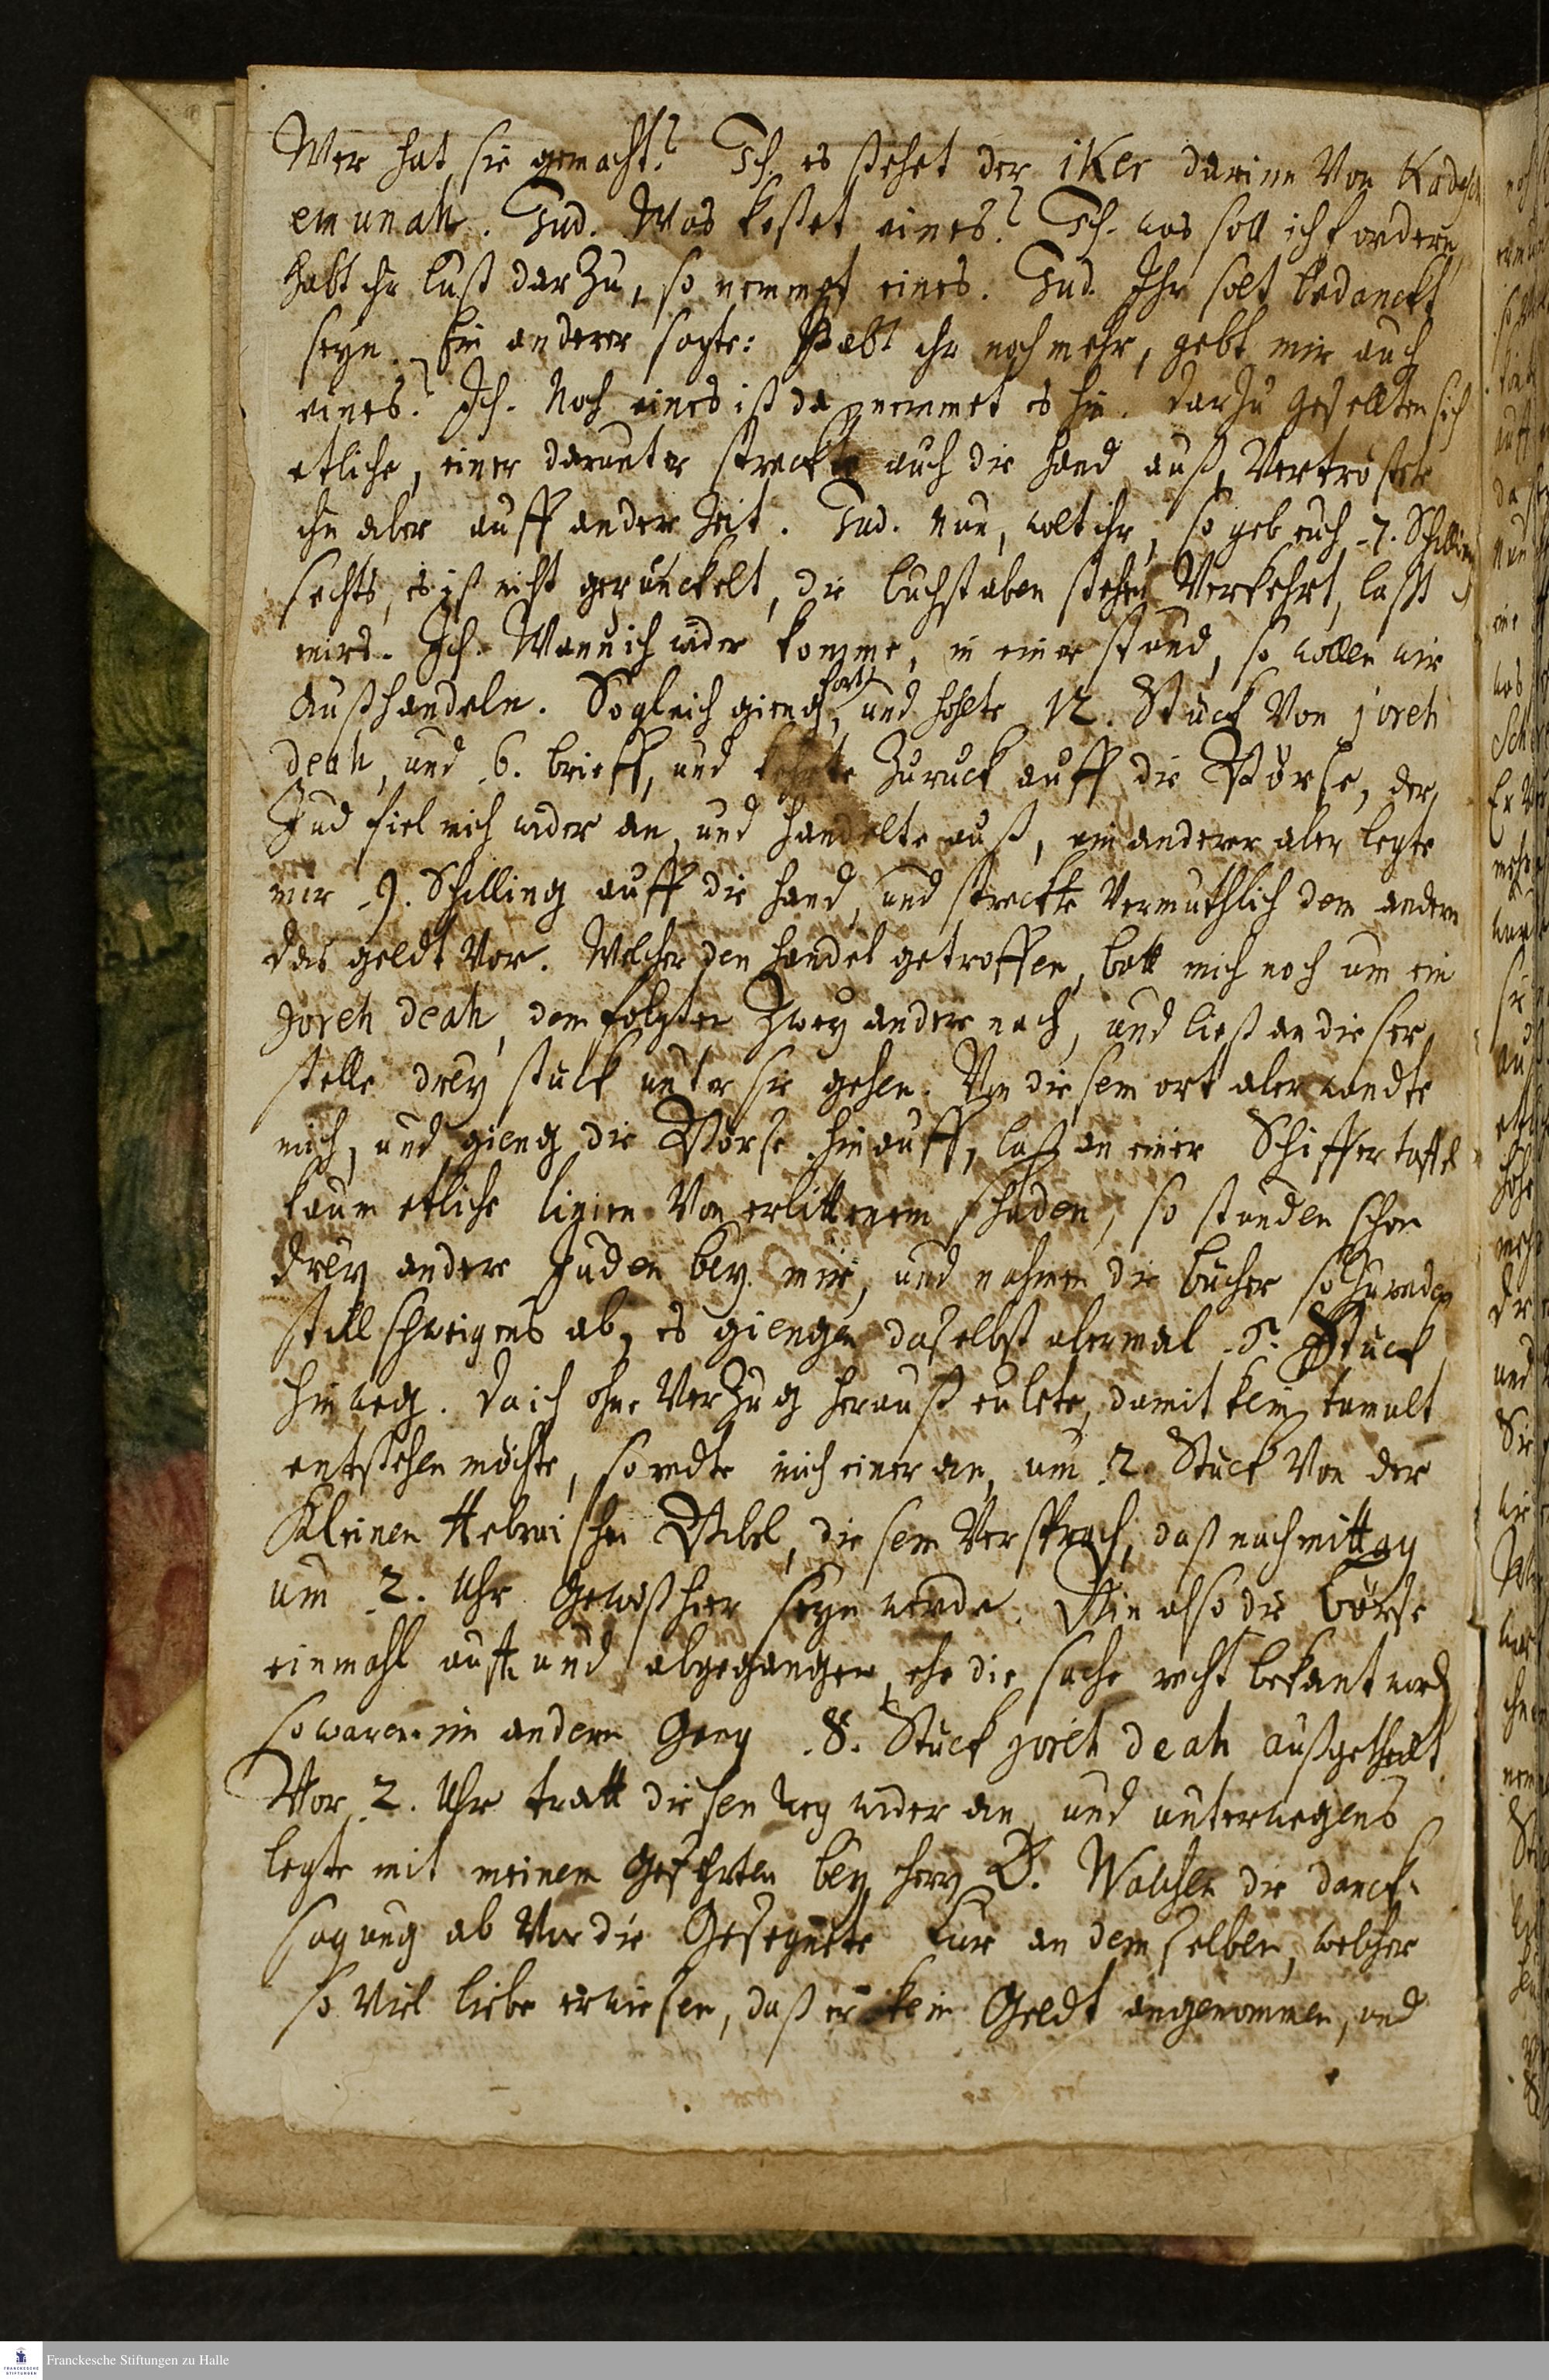 Wer hat sie gemacht? Ich es stehet der iKer darinn Von Kodesch
emunah. Jud. Was kostet eines? Ich. was soll ich fordern,
habt ihr lust darzu, so nemmet eines. Jud. Ihr solt bedanckt
seyn. Ein anderer sagte: Habt ihr noch mehr, gebt mir auch
eines? Ich. Noch eines ist da nemmet es hin. darzu gesellten sich
etliche, einer darunter streckte auch die hand auß, Vertröstete
ihn aber auff ander Zeit. Jud. Nun, wolt ihr, so geb euch 7. Schilling
sechts, es ist nicht gepünckelt, die buchstaben stehen Verkehrt, laßt
mirs. Ich. Wann ich wider komme, in einer stund, so wollen wir
außhandeln. Sogleich gieng fort, und hohlte 12. Stück Von joreh
deah, und 6. brieff, und kehrte Zuruck auff die Börse, der
Jud fiel mich wider an, und handelte auß, ein anderer aber legte
mir 9. Schilling auff die hand, und streckte Vermuthlich dem andern
das geldt Vor. Welcher den handel getroffen, batt mich noch um ein
Joreh deah, dem folgten Zwey andere nach, und ließ an dieser
stelle drey stuck unter sie gehen. Von diesem ort aber wandte
mich, und gieng die Börse hinauff, laß an einer Schiffer taffel
kaum etliche linien Von erlittenem schaden, so stunden schon
drey andere Juden bey mir, und nahmen die bücher so zu reden
stillschweigens ab, es giengen daselbst abermal 5. Stuck
hinweg. da ich ohne VerZug herauß eulete, damit kein tumult
entstehen möchte, so redte mich einer an, um 2. Stuck Von der
Kleinen Hebraischen Bibel, diesem Versprach, daß nachmittag
um 2. Uhr Gewiß hier seyn werde. Bin also die börse
einmahl auff und abgegangen, ehe die sache recht bekant ward
so waren im andern Gang 8. Stuck joreh deah außgetheilt
Vor 2. Uhr tratt diesen weg wider an, und unterwegens
legte mit meinen Gefehrten bey herrn D. Walchen die danck-
sagung ab Vor die Gesegnete Cur an demselben, welcher
so viel liebe erwiesen, daß er kein Geldt angenommen, und
Franckesche Stiftungen zu Halle